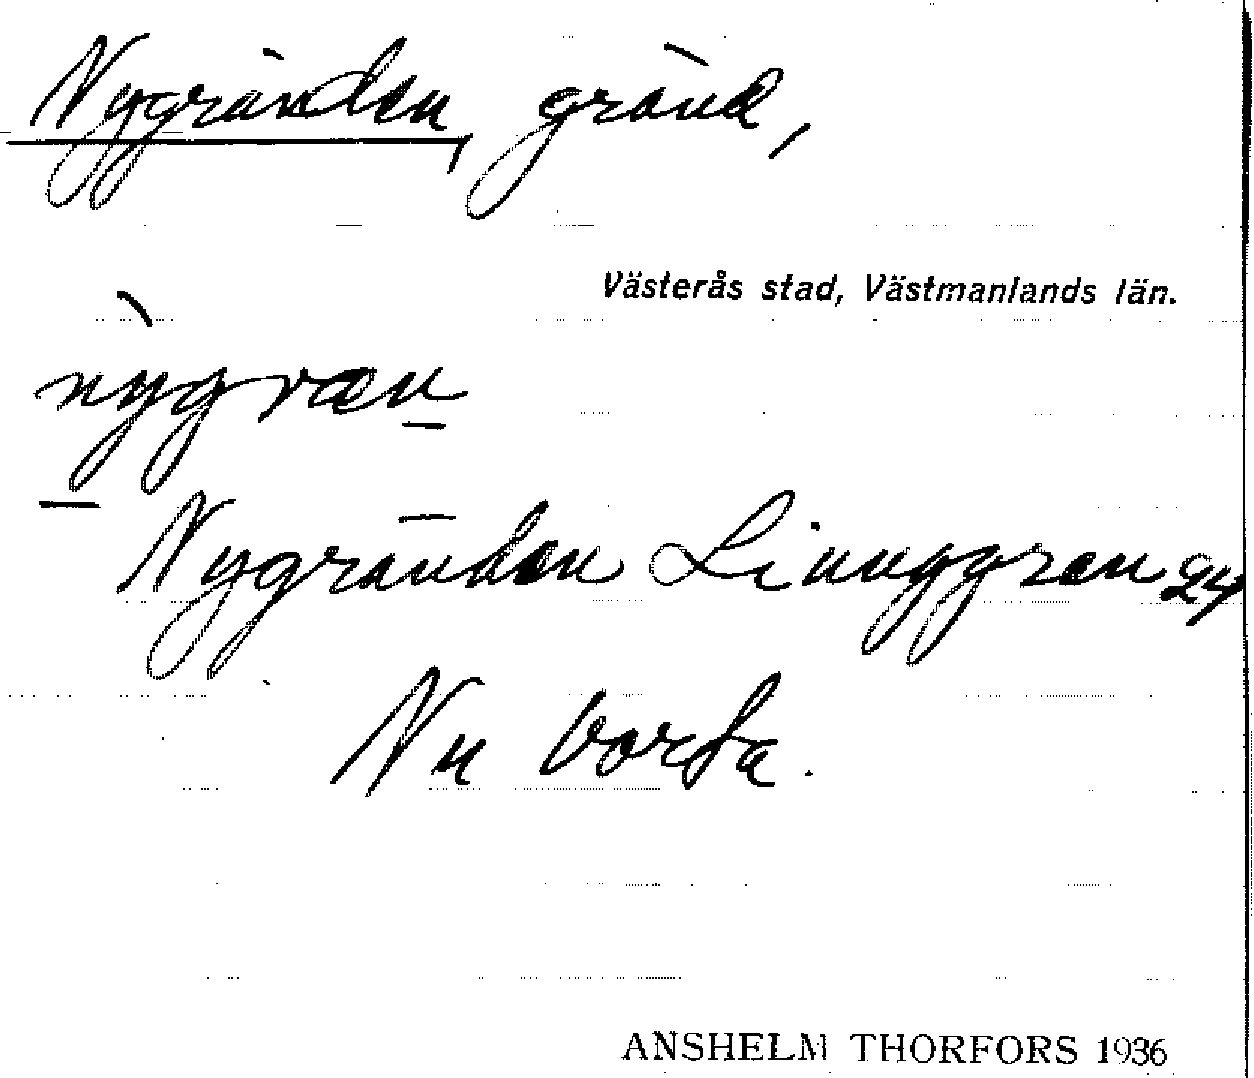 Nygränden, gränd,
Västerås stad, Västmanlands län.
nỳgræn
Nygränden Linnggren 24
Nu borta.
ANSHELM THORFORS 1936